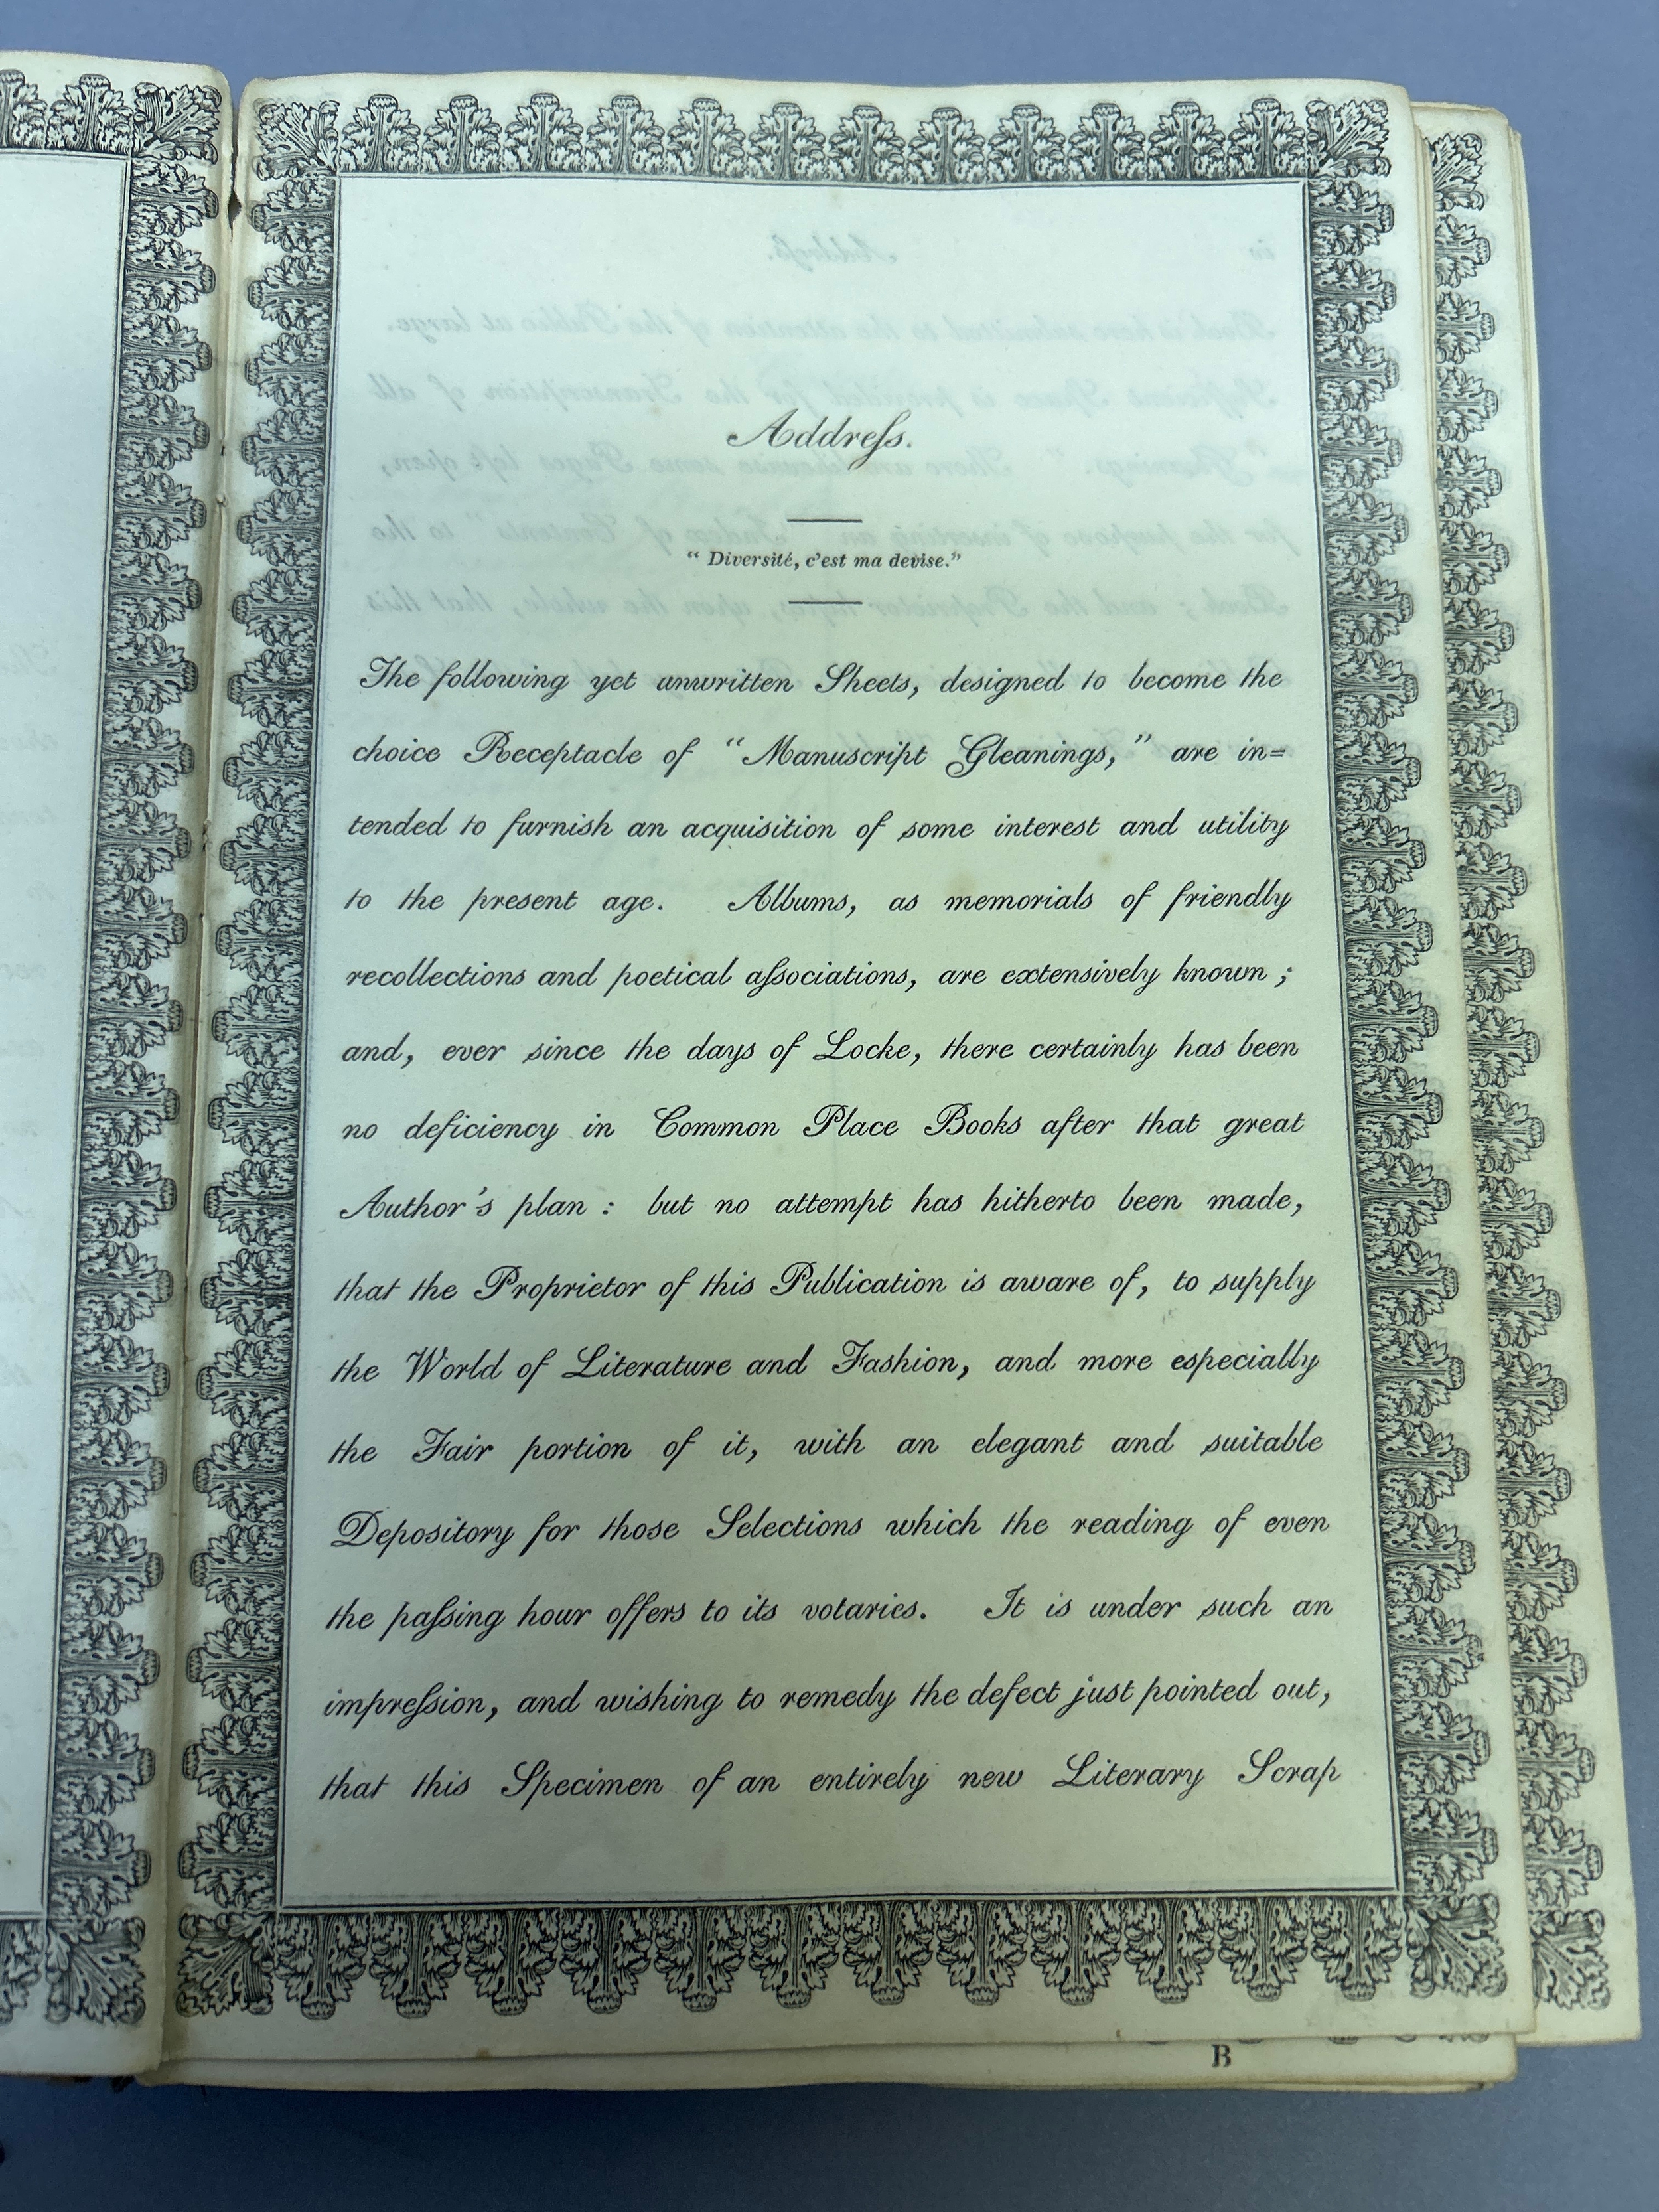 Addreſs.
“ Diversité, c’est ma devise.”
The following yet unwritten Sheets, designed to become the
choice Receptacle of “Manuscript Gleanings,” are in=
tended to furnish an acquisition of some interest and utility
to the present age. Albums, as memorials of friendly
recollections and poetical aſsociations, are extensively known ;
and, ever since the days of Locke, there certainly has been
no deficiency in Common Place Books after that great
Author’s plan : but no attempt has hitherto been made,
that the Proprietor of this Publication is aware of, to supply
the World of Literature and Fashion, and more especially
the Fair portion of it, with an elegant and suitable
Depository for those Selections which the reading of even
the paſsing hour offers to its votaries. It is under such an
impreſsion, and wishing to remedy the defect just pointed out,
that this Specimen of an entirely new Literary Scrap
B